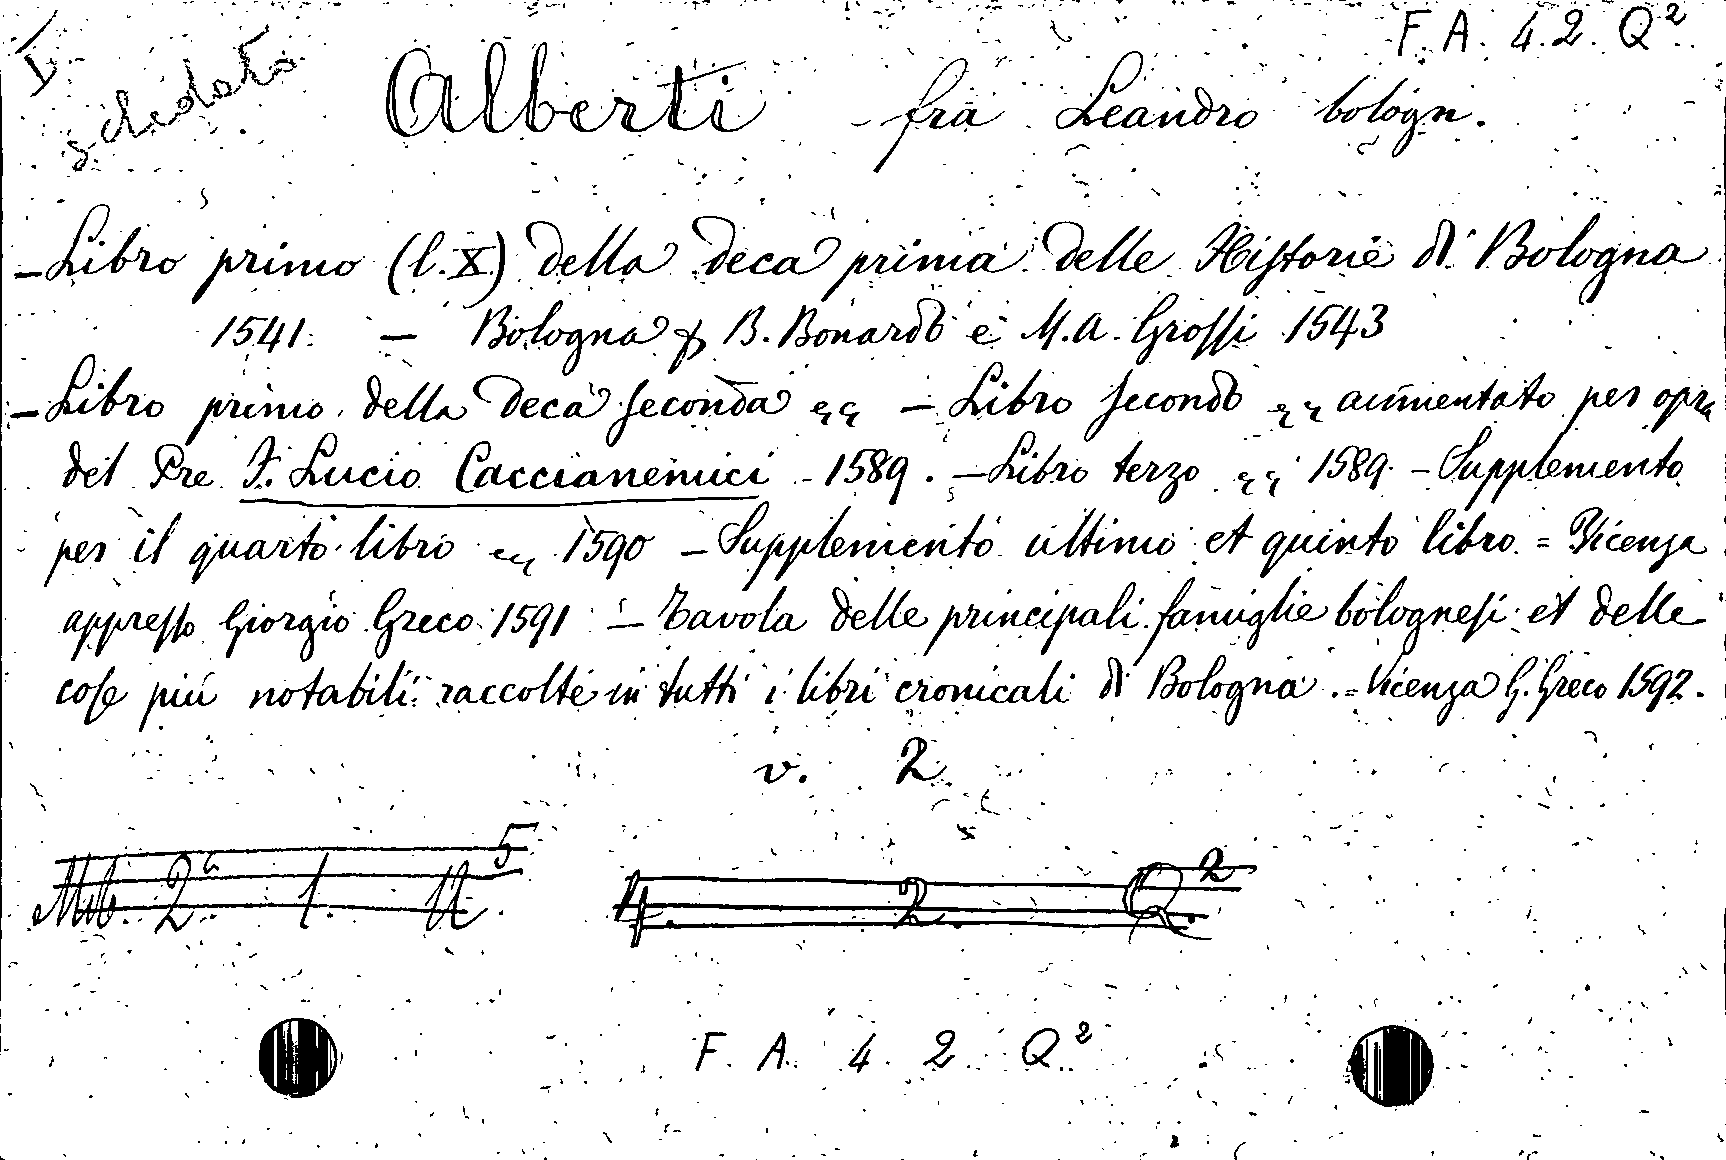 F. A. 4. 2. Q²
V
schedato
Alberti - fra Leandro bologn.
- Libro primo (l. X) della deca prima delle Historie di Bologna
1541. — Bologna B. Bonardo e M. A. Grossi 1543
- Libro primo della deca seconda — Libro secondo aumentato per opra
del Pre F. Lucio Caccianemici - 1589. - Libro terzo 1589. - Supplemento
per il quarto libro 1590 - Supplemento ultimo et quinto libro. = Vicenza
appresso Giorgio Greco 1591 - Tavola delle principali famiglie bolognesi et delle
cose più notabili raccolte in tutti i libri cronicali di Bologna. = Vicenza G. Greco 1592.
v. 2
2ª 1. 5
4. 2. Q.²
F. A. 4 2 Q²